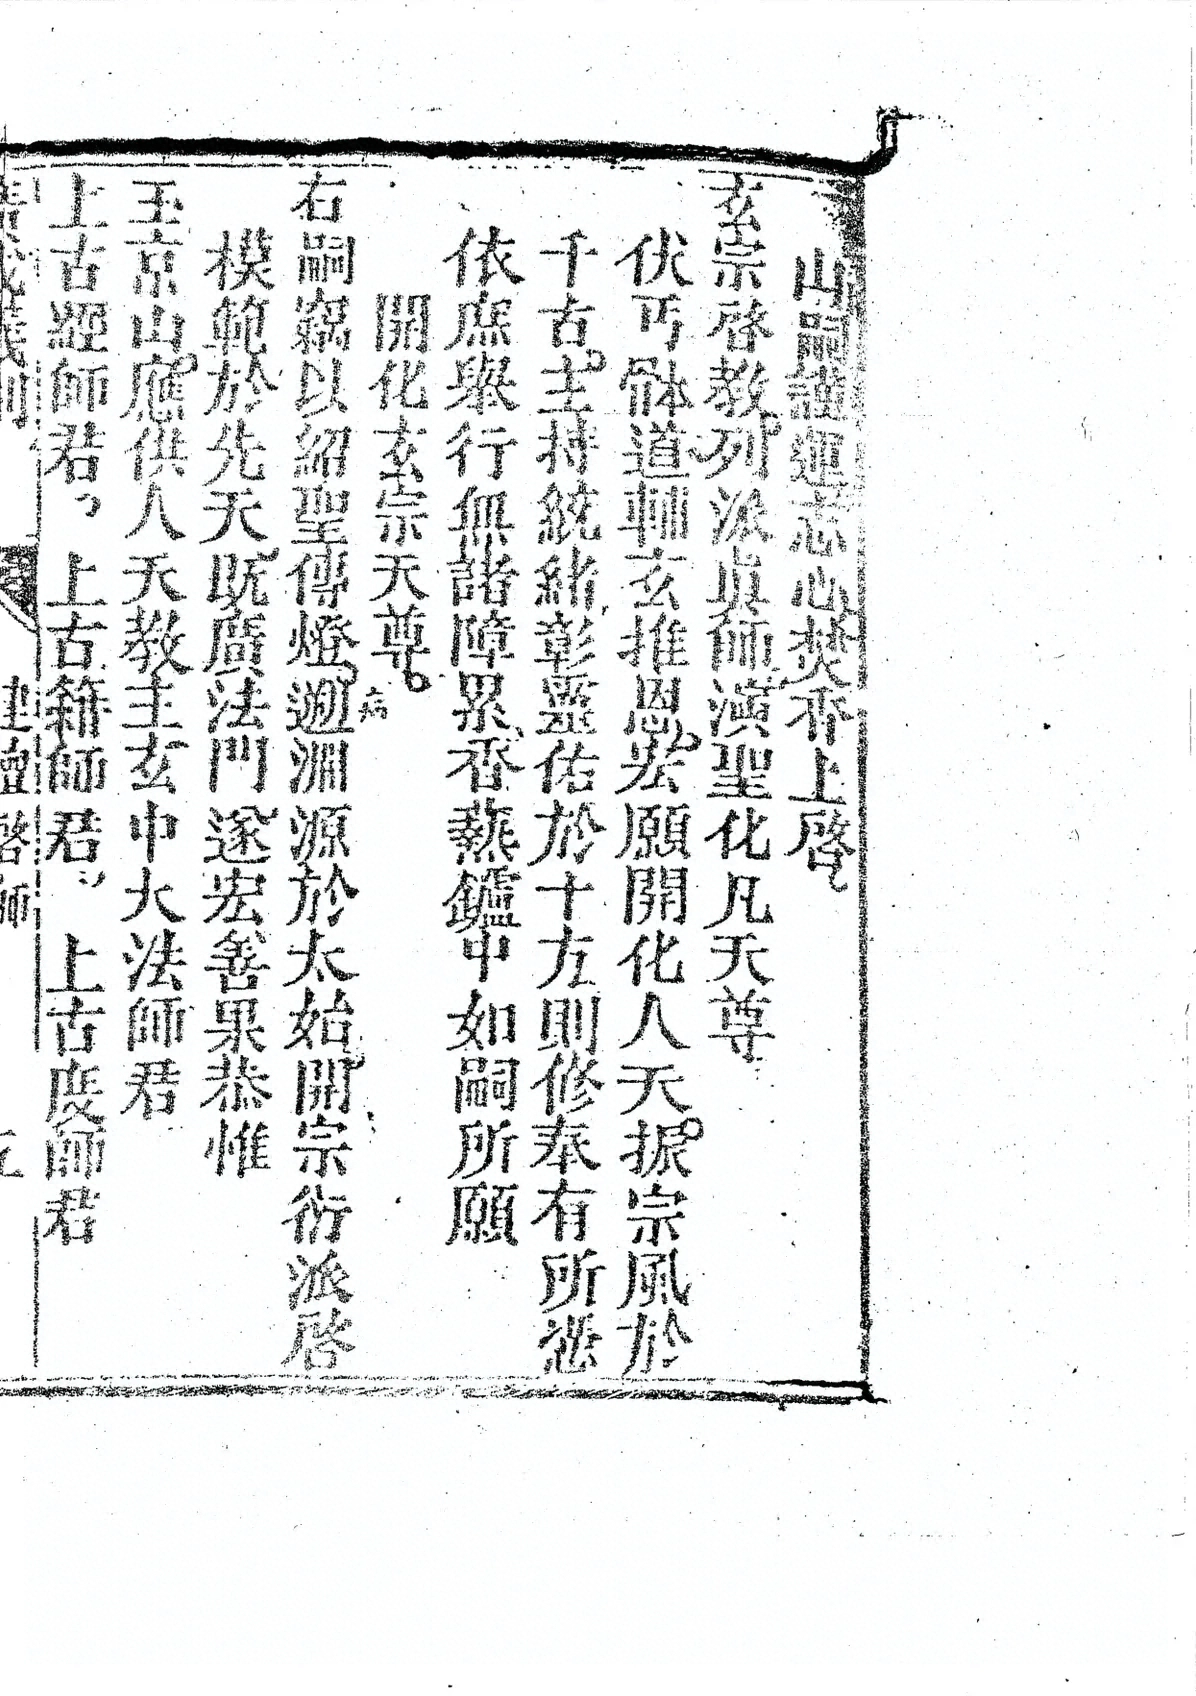 山嗣謹運志心焚香上啓
玄宗啓教列派眞師演聖化凡天尊
伏丐體道輔玄推恩宏願開化人天振宗風於
千古主持統緒彰靈佑於十方則修奉有所愆
依庶舉行無諸障累香爇鑪中如嗣所願
開化玄宗天尊
右嗣竊以紹聖傳燈遡淵源於太始開宗衍派啓
模範於先天旣廣法門遂宏善果恭惟
玉京山應供人天教主玄中大法師君
上古經師君 上古籍師君 上古度師君
建壇啓師